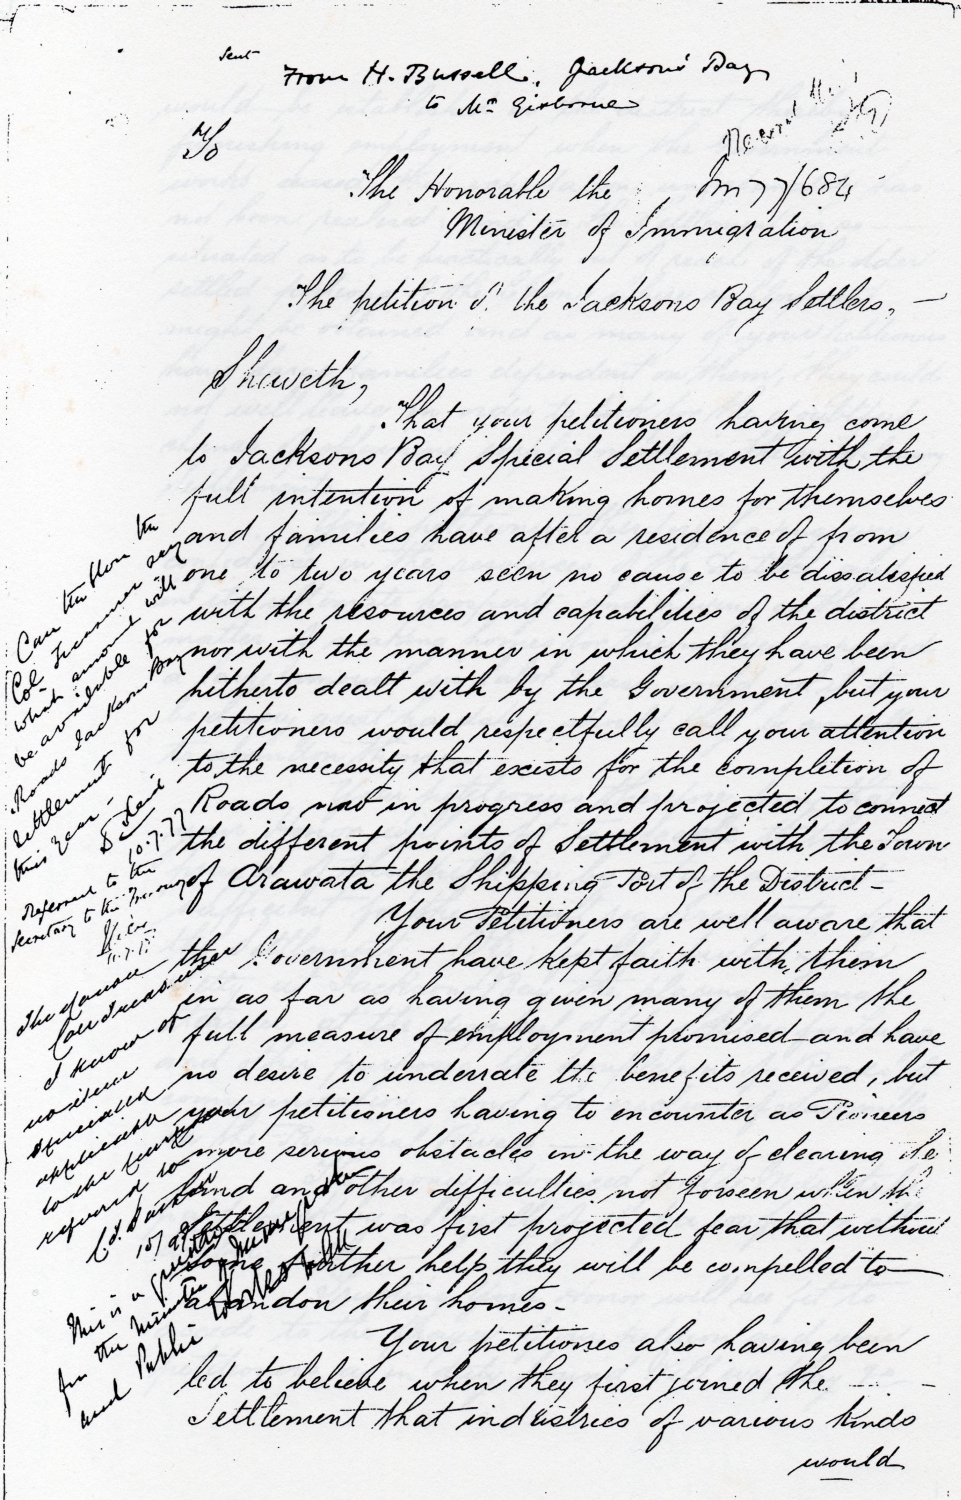 Sent
From H. Bussell, Jacksons Bay
to Mr Gisborne
To
The Honorable the Im 77/684
Minister of Immigration
The petition of the Jacksons Bay Settlers,
Sheweth,
That your petitioners having come
to Jacksons Bay Special Settlement with the
full intention of making homes for themselves
and families have after a residence of from
one to two years seen no cause to be dissatisfied
with the resources and capabilities of the district
nor with the manner in which they have been
hitherto dealt with by the Government, but your
petitioners would respectfully call your attention
to the necessity that exists for the completion of
Roads now in progress and projected to connect
the different points of Settlement with the Town
of Arawata the Shipping Port of the District -
Your Petitioners are well aware that
the Government have kept faith with them
in as far as having given many of them the
full measure of employment promised and have
no desire to underrate the benefits received, but
your petitioners having to encounter as Pioneers
more serious obstacles in the way of clearing the
land and other difficulties not forseen when the
Settlement was first projected fear that without
some further help they will be compelled to
abandon their homes -
Your petitiones also having been
led to believe when they first joined the
Settlement that industries of various kinds
would
Can the Hon the
Col Treasurer say
what amount will
be available for
Roads Jackson Bay
Settlement for
this year -
10.7.77
Referred to the
Secretary to the Treasury
11.7.77
The Honor
Col Treasurer
I know of
no item
specially
applicable
to the purpose
referred to
This is a question
for the Minister
and Public Works